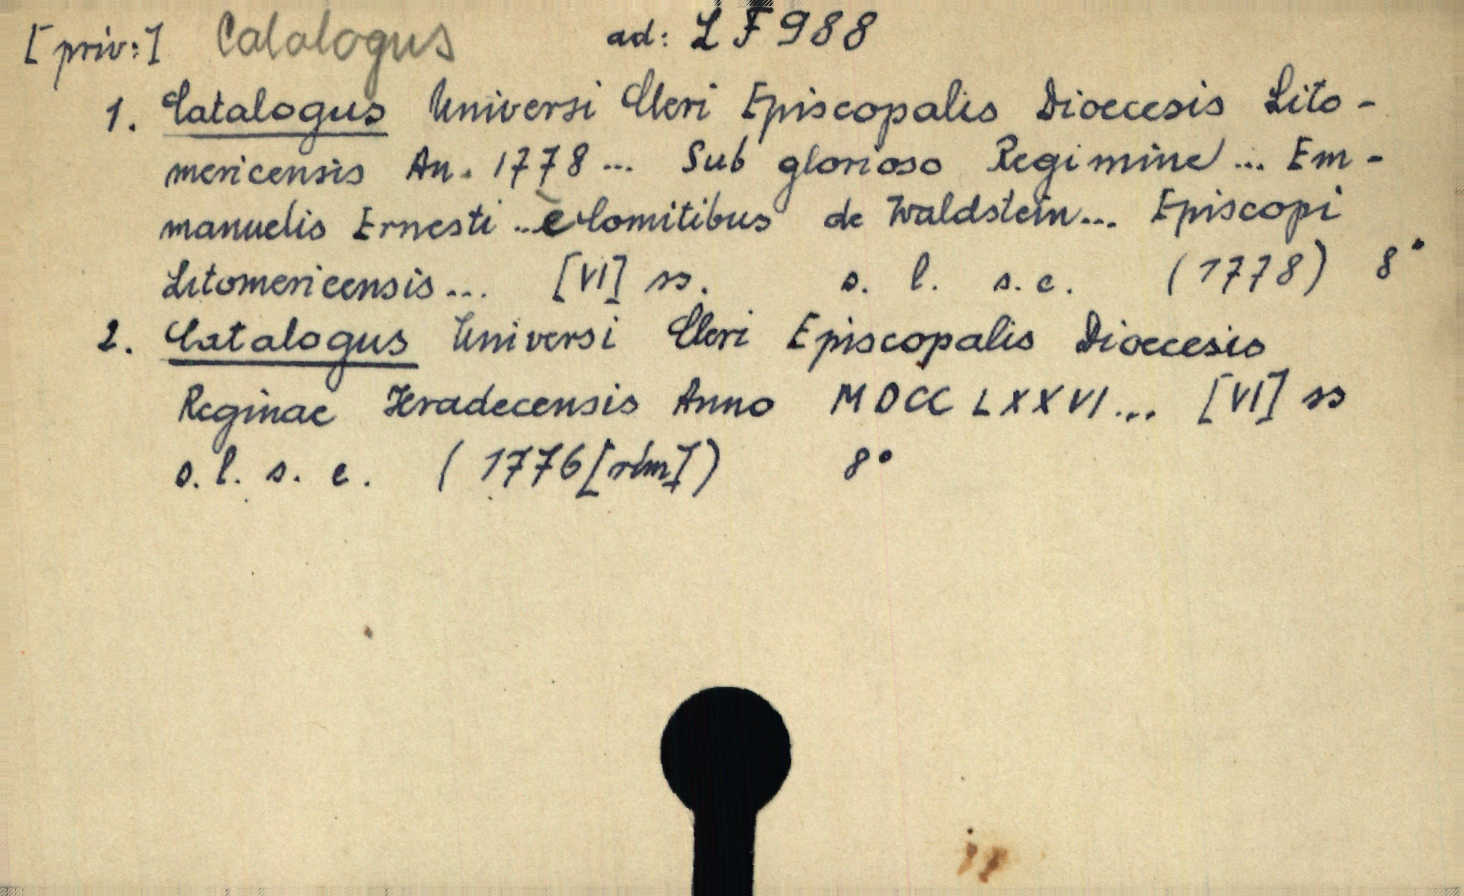 [priv:] Catalogus ad: LF 988
1. Catalogus Universi Cleri Episcopalis Dioecesis Lito-
mericensis An. 1778... Sub glorioso Regimine ... Em-
manuelis Ernesti ... è Comitibus de Waldstein... Episcopi
Litomericensis... [VI] ss. s. l. s. e. (1778) 8°
2. Catalogus Universi Cleri Episcopalis Dioecesis
Reginae Hradecensis Anno MDCCLXXVI... [VI] ss
s. l. s. e. (1776 [rím]) 8°